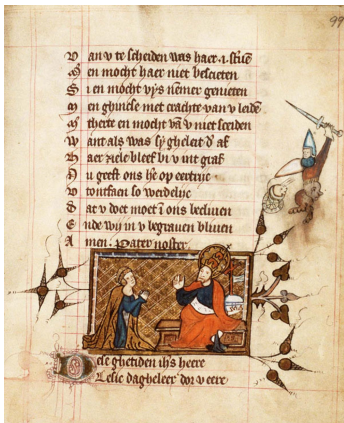 99
V an v te scheiden was haer i. stuē
M en mocht haer niet bescieten
S i en mocht vīs nēmer genieten
M en ghincse met crachte van v leidē
M therte en mocht vā v niet sceiden
W ant als was sy gheleit d af
H aer ziele bleef bi v int graf
N u geeft ons he op eertrijc
V ontfaen so werdelijc
D at v doet moet ī ons becliuen
E nde wij in v begrauen bliuen
A men. Pater noster.
D ese ghetiden ihs heere
Lesic dagheler dor v eere